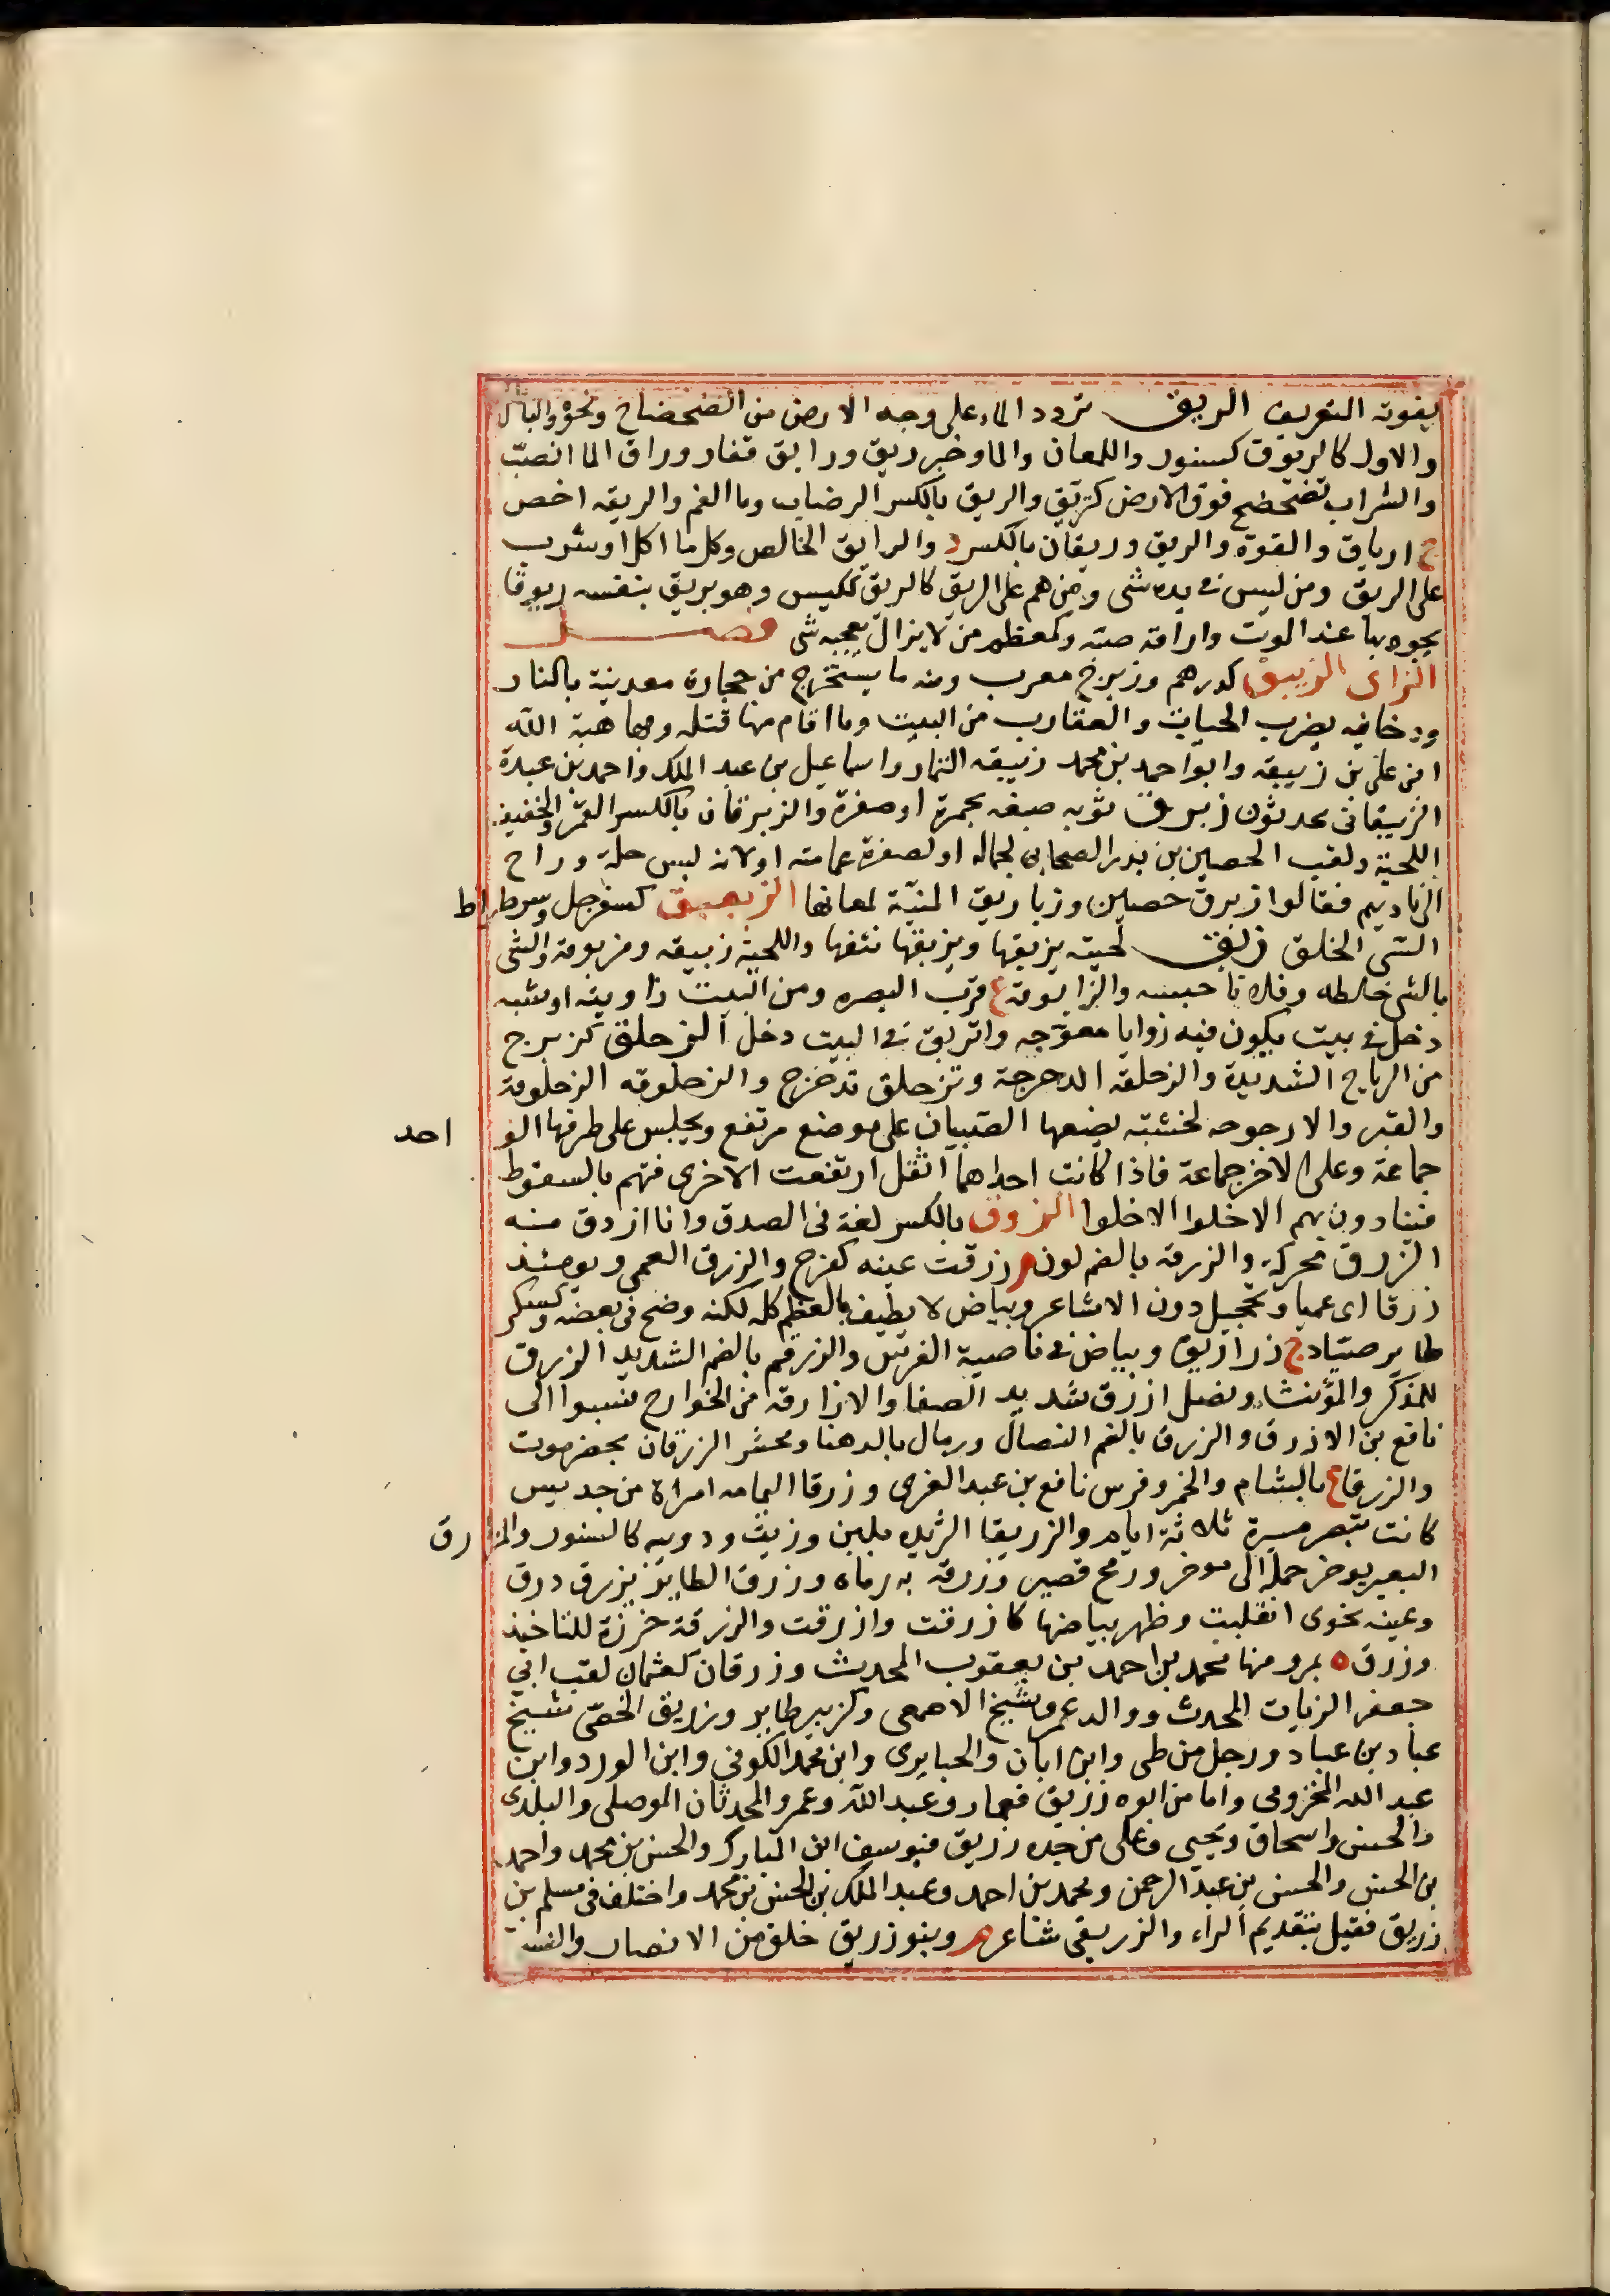 يفوته التعريف الريق تردد الماء على وجه الارض من الضحضاح ونحوه والباطل
والاول كالريوق كتنور واللمعان والما وخبز ريق ورايق قفار وراق الما انصبّ
والشراب تضحضح فوق الارض كتريّق والريق بالكسر الرضاب وما الفم والريقه اخص
ج ارياق والقوة والريق وريقان بالكسر د والرايق الخالص وكل ما اكل او شرب
على الريق ومن ليس في يده شى ومن هم على الريق كالريّق ككيس وهو يريق بنفسه ريوقا
يجود بها عند الموت واراقه صبه وكمعظم من لا يزال يعجبه شى فصـــل
الزاى الزيبق كدرهم وزبرج معرب ومنه ما يستخرج من حجارة معدنية بالنار
ودخانه يهرب الحيات والعقارب من البيت وما اقام منها قتله ومها هبة الله
ابن على بن زيبقه وابو احمد بن محمد زنيبقه التمار واسماعيل بن عبد الملك واحمد بن عبدة
الزيبقانى محدثون زبرق ثوبه صبغه بحمرة او صفرة والزبرقان بالكسر القمر والخفيف
اللحية ولقب الحصين بن بدر الصحابى لجماله او لصفرة عمامته او لانه لبس حلة وراح
الى ناديهم فقالوا زبرق حصين وزباريق المنيّة لمعانها الزبعبق كسفرجل وسرطراط
السّى الخلق زبق لحيته يزبقها ويزبقها نتفها واللحية زبيقه ومزبوقة والشى
بالشى خلطه وفلانا حبسه والزابوقة ع قرب البصره ومن البيت زاويته او شبه
دخل في بيت يكون فيه زوايا معوّجه وانزبق في البيت دخل الزحلق كزبرج
من الرياح الشديدة والزحلقه الدحرجة وتزحلق تدحرج والزحلوقه الزحلوفة
والقبر والارجوحه لخشبته يضعها الصّبيان على موضع مرتفع ويجلس على طرفها الواحد
جماعة وعلى الاخر جماعة فاذا كانت احداهما اثقل ارتفعت الاخرى فتهم بالسقوط
فينادون بهم الاخلوا الاخلوا الزدق بالكسر لغة فى الصدق وانا ازدق منه
الزرق محركة والزرقه بالضم لون م زرقت عينه كفرح والزرق العمى ويومئذ
زرقا اى عميا وتحجيل دون الاشاعر وبياض لا يطيف بالعظم كله لكنه وضح فى بعضه وكسكر
طاير صيّاد ج زراريق وبياض في ناصية الفرس والزرقم بالضم الشديد الزرق
للمذكر والمؤنث ونصل ازرق شديد الصفا والازارقه من الخوارج نسبوا الى
نافع بن الازرق والزرق بالضم النصال ورمال بالدهنا ومحشر الزرقان بحضرموت
والزرقا ع بالشام والخمر وفرس نافع بن عبد الغرى وزرقا اليمامه امراة من جديس
كانت تبصر مسيرة ثلاثة ايام والزريقا الثريده بلبن وزيت ودويبه كالسنور والمزرق
البعير يوخر حمله الى موخر ورمح قصير وزرقه به رماه وزرق الطاير يزرق درق
وعينه نحوى انقلبت وظهر بياضها كازرقت وازرقت والزرقة خرزة للتاخيذ
وزرق ه بمرو منها محمد بن احمد بن يعقوب المحدث وزرقان كعثمان لقب ابى
جعفر الزيات المحدث ووالد عمرو شيخ الاصمعى وكزبير طاير وزريق الخصّى شيخ
عباد بن عباد ورجل من طى وابن ابان والحبايرى وابن محمد الكوفى وابن الورد وابن
عبد الله المخزومى واما من ابوه زريق فعمار وعبد الله وعمرو المحدثان الموصلى والبلدى
والحسن واسحاق ويحيى وعلى من جده زريق فيوسف ابن المبارك والحسن بن محمد واحمد
بن الحسن والحسن بن عبد الرحمن ومحمد بن احمد وعبد الملك بن الحسن بن محمد واختلف فى مسلم بن
زريق فقيل بتقديم الراء والزريقى شاعر م وبنو زريق خلق من الانصار والنسبة